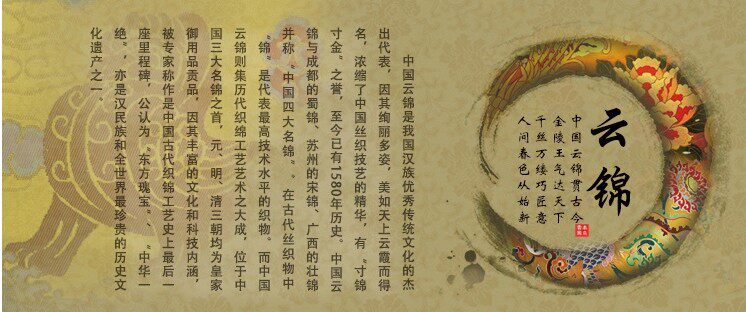 云锦
中国云锦贯古今
金陵王气达天下
千丝万缕巧匠意
人间春色从始新
中国云锦是我国汉族优秀传统文化的杰
出代表，因其绚丽多姿，美如天上云霞而得
名，浓缩了中国丝织技艺的精华，有“寸锦
寸金”之誉，至今已有1580年历史。中国云
锦与成都的蜀锦、苏州的宋锦、广西的壮锦
并称“中国四大名锦”。在古代丝织物中
“锦”是代表最高技术水平的织物。而中国
云锦则集历代织锦工艺艺术之大成，位于中
国三大名锦之首，元、明、清三朝均为皇家
御用品贡品，因其丰富的文化和科技内涵，
被专家称作是中国古代织锦工艺史上最后一
座里程碑，公认为“东方瑰宝”、“中华一
绝”，亦是汉民族和全世界最珍贵的历史文
化遗产之一。